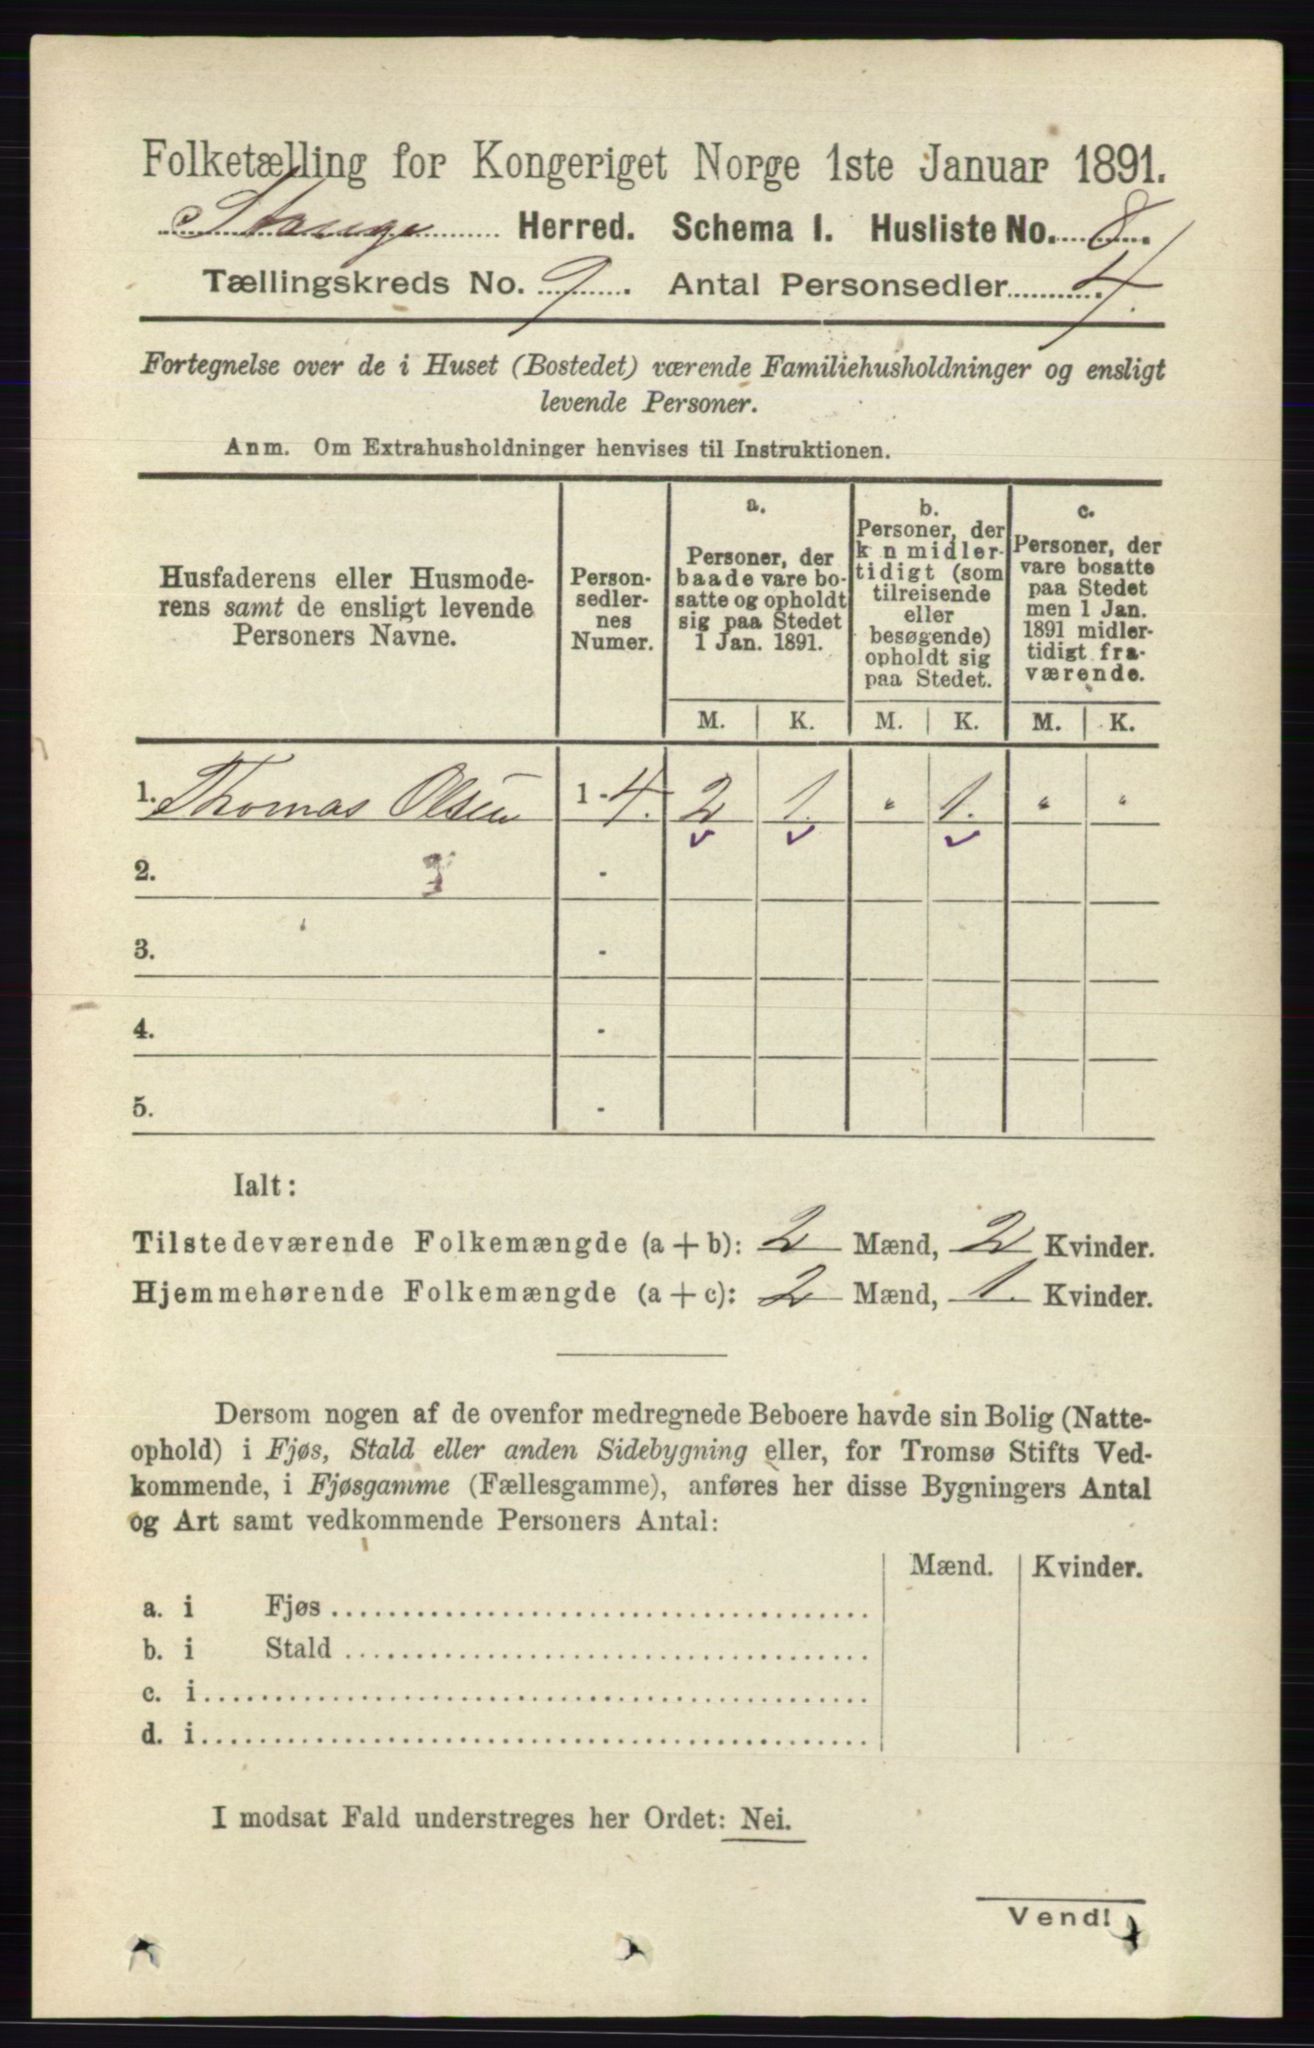 Folketælling for Kongeriget Norge 1ste Januar 1891.
Stange Herred. Schema I. Husliste No. 8.
Tællingskreds No. 9. Antal Personsedler 4.
Fortegnelse over de i Huset (Bostedet) værende Familiehusholdninger og ensligt
levende Personer.
Anm. Om Extrahusholdninger henvises til Instruktionen.
Husfaderens eller Husmode-
rens samt de ensligt levende
Personers Navne.
Person-
sedler-
nes
Numer.
a.
Personer, der
baade vare bo-
satte og opholdt
sig paa Stedet
1 Jan. 1891.
b.
Personer, der
k n midler-
tidigt (som
tilreisende
eller
besøgende)
opholdt sig
paa Stedet.
c.
Personer, der
vare bosatte
paa Stedet
men 1 Jan.
1891 midler-
tidigt fra-
værende.
M. K. M. K. M. K.
1. Thomas Olsen 1-4. 2 1. " 1. " "
2. 3 -
3. -
4. -
5. -
Ialt:
Tilstedeværende Folkemængde (a + b): 2 Mænd, 2 Kvinder.
Hjemmehørende Folkemængde (a + c): 2 Mænd, 1. Kvinder.
Dersom nogen af de ovenfor medregnede Beboere havde sin Bolig (Natte-
ophold) i Fjøs, Stald eller anden Sidebygning eller, for Tromsø Stifts Ved-
kommende, i Fjøsgamme (Fællesgamme), anføres her disse Bygningers Antal
og Art samt vedkommende Personers Antal:
Mænd. Kvinder.
a. i Fjøs
b. i Stald
c. i
d. i
I modsat Fald understreges her Ordet: Nei.
Vend!